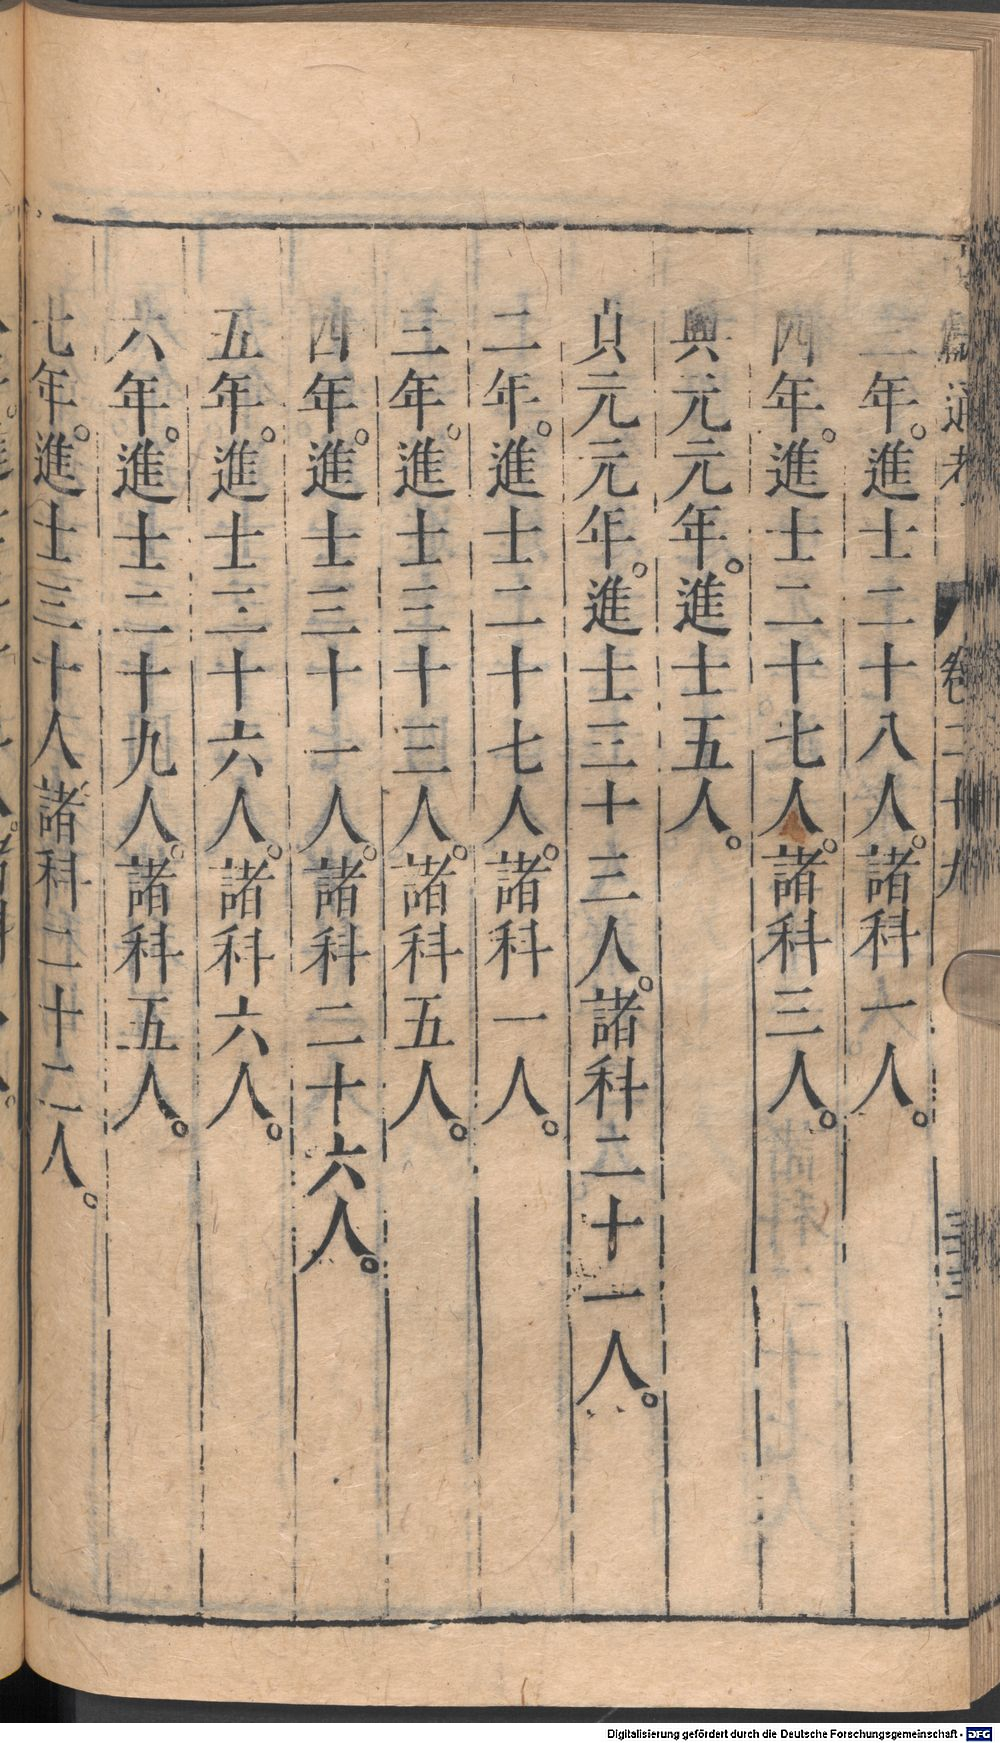 獻通考 卷二十九
三年。進士二十八人。諸科一人。
四年。進士二十七人。諸科三人。
興元元年。進士五人。
貞元元年。進士三十三人。諸科二十一人。
二年。進士二十七人。諸科一人。
三年。進士三十三人。諸科五人。
四年。進士三十一人。諸科二十六人。
五年。進士三十六人。諸科六人。
六年。進士二十九人。諸科五人。
七年。進士三十人諸科二十二人。
Digitalisierung gefördert durch die Deutsche Forschungsgemeinschaft - DFG